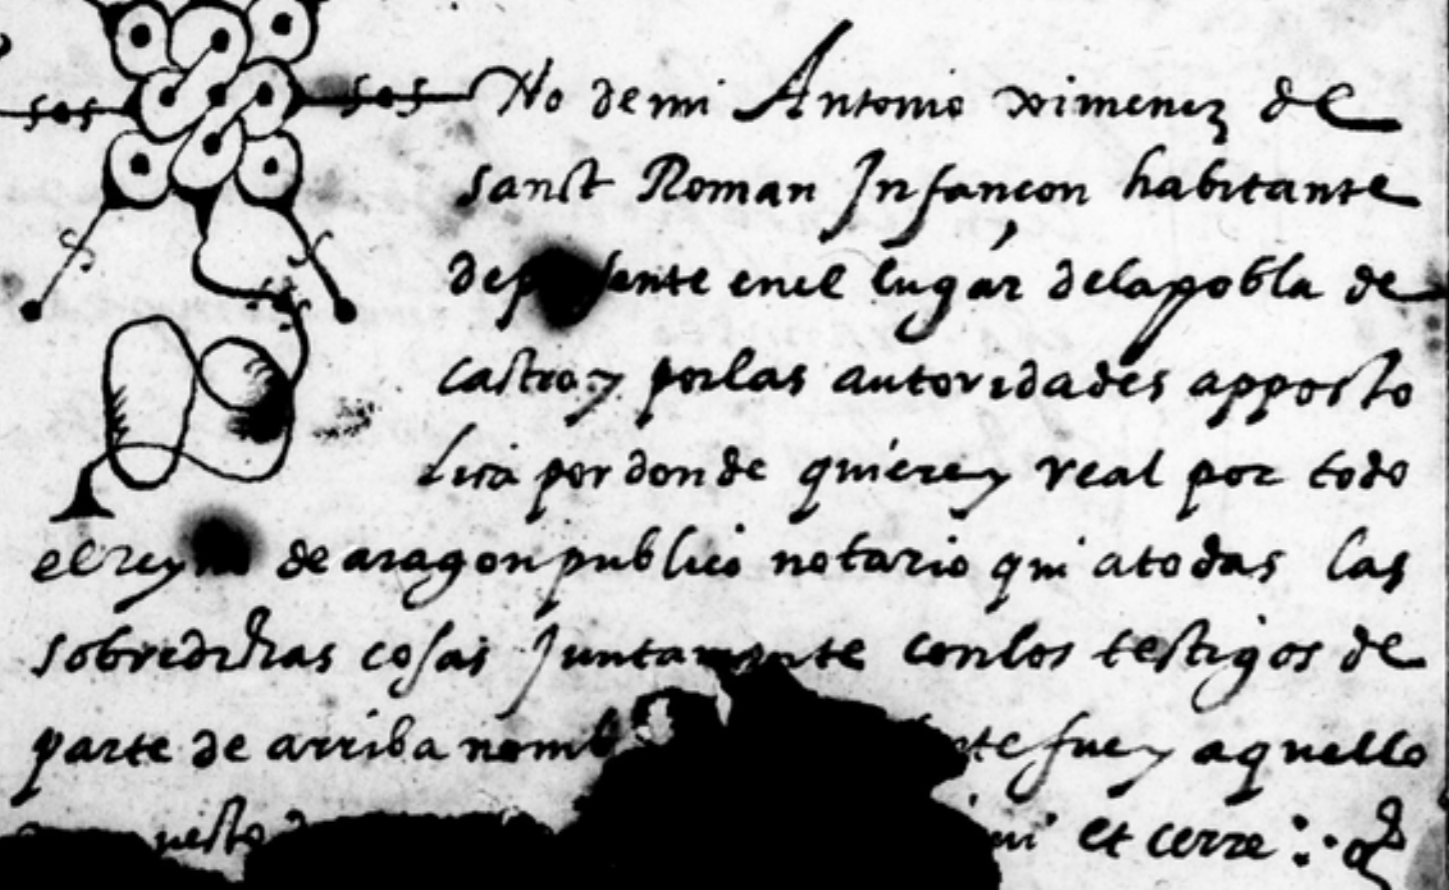 sos sos No de mi Antonio ximenez de
sanct Roman Infançon habitante
de enel lugar dela pobla de
castro y por las autoridades apposto
lica por don de quiere y real por todo
el de aragon publico notario qui a todas las
sobredichas cosas Juntamente con los testigos de
parte de arriba fue y aquello
et cerre